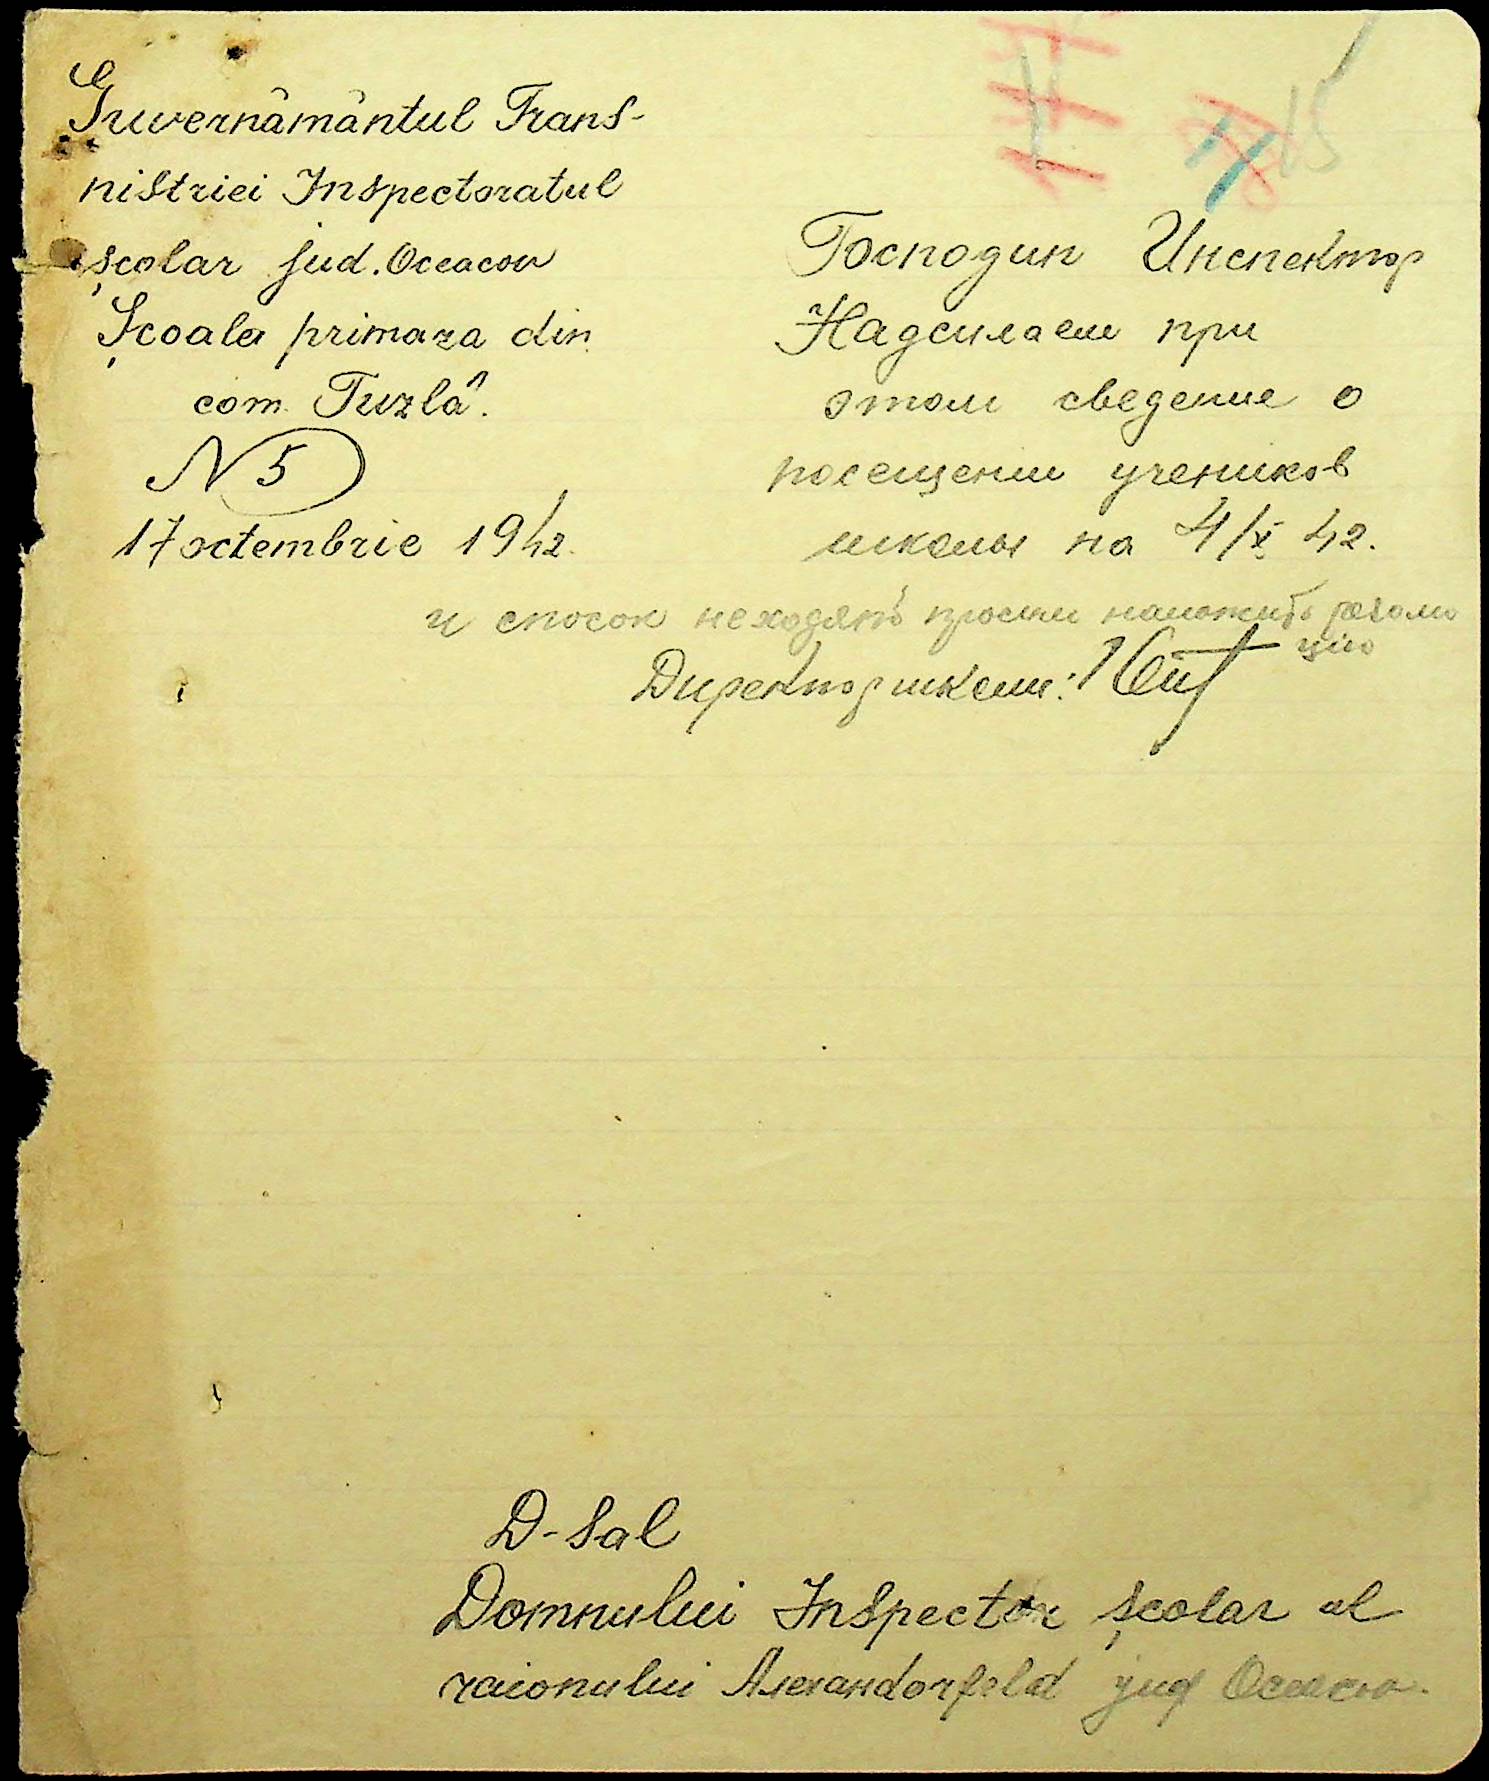 Guvernământul Trans-
nistriei Inspectoratul
școlar jud. Oceacov
Școala primara din
com. Tuzlâ.
N 5
17 octembrie 1942.
Господин Инспектор
Надсилаем при
этом сведение о
посещении учеников
школы на 4/X 42.
и список неходять просим наложить резолю
цию
Директор школи:
D-sal
Domnului Inspector școlar al
raionului Алехандоrfeld jud Oceacov.